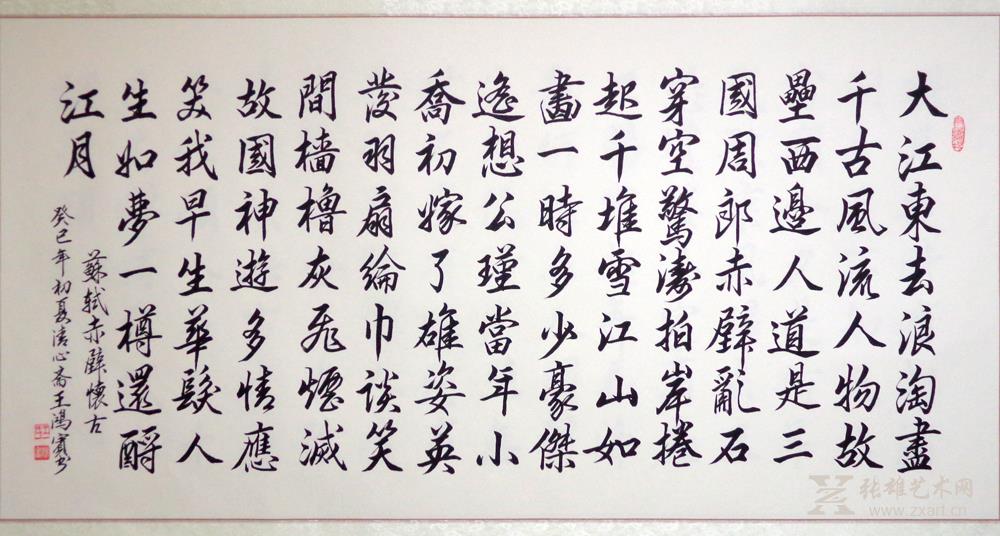 大江東去浪淘盡
千古風流人物故
壘西邊人道是三
國周郎赤壁亂石
穿空驚濤拍岸捲
起千堆雪江山如
畫一時多少豪傑
遙想公瑾當年小
喬初嫁了雄姿英
發羽扇綸巾談笑
間檣櫓灰飛煙滅
故國神遊多情應
笑我早生華髮人
生如夢一樽還酹
江月
蘇軾赤壁懷古
癸巳年初夏清心齋王鴻賓書
张雄艺术网
www.zxart.cn